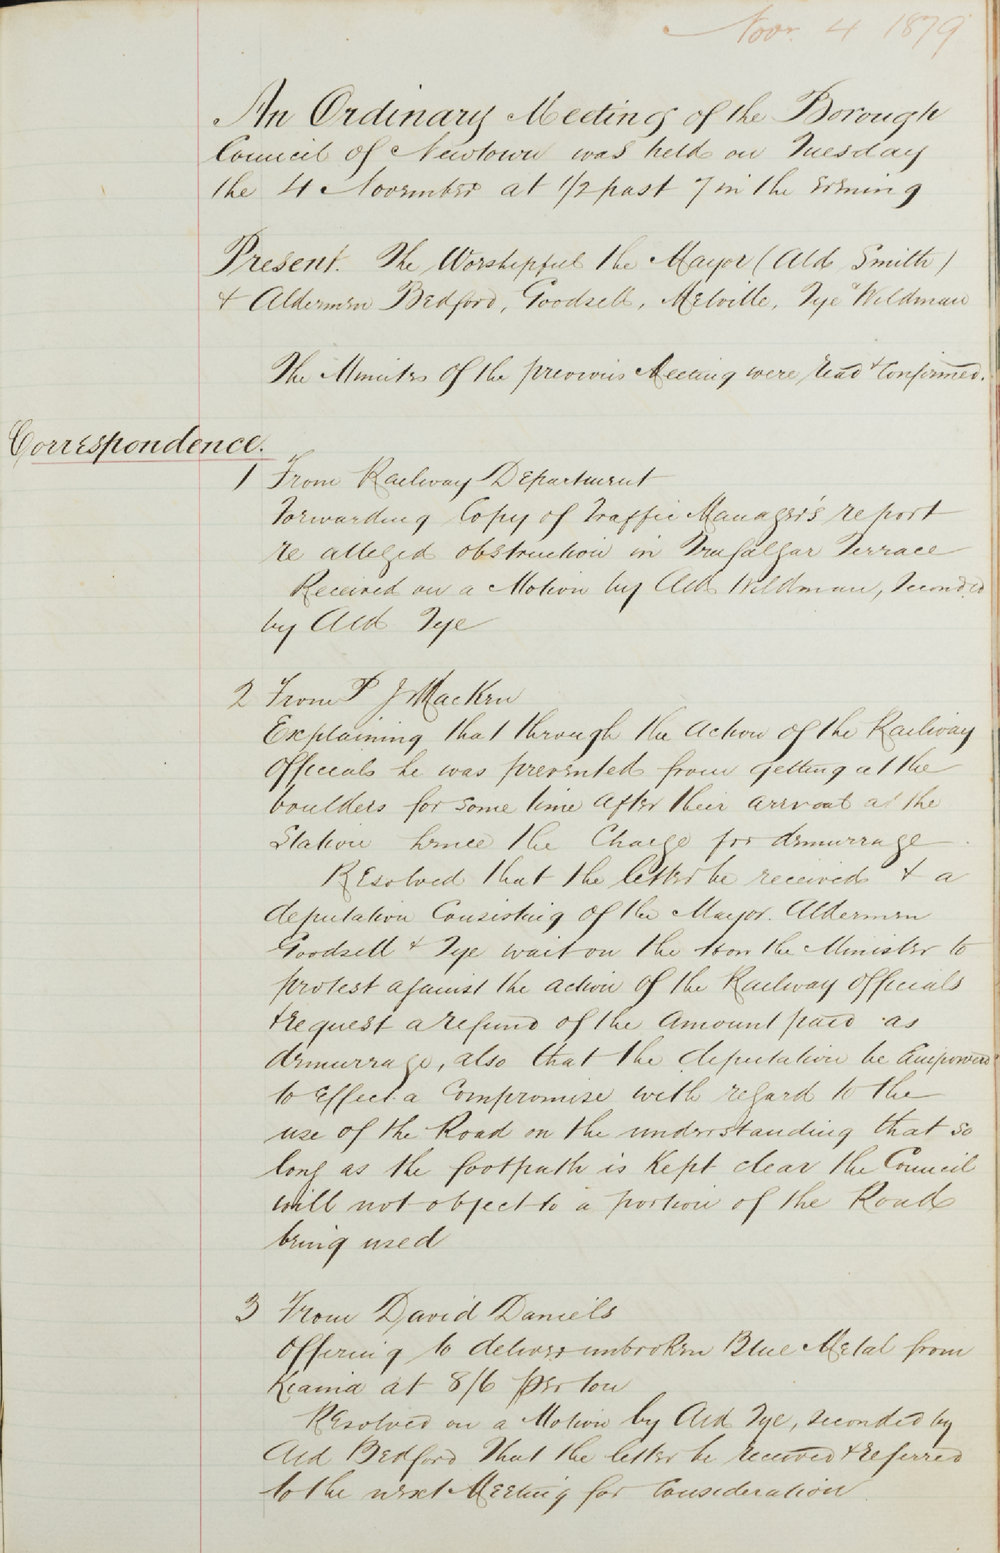 Nov. 4 1879
An Ordinary Meeting of the Borough
Council of Newtown was held on Tuesday
the 4 November at 1/2 past 7 in the evening
Present. The Worshipful the Mayor (Ald Smith)
& Aldermen Bedford, Goodsell, Melville, Tye & Wildman
The Minutes of the previous Meeting were read & confirmed.
Correspondence.
1 From Railway Department
Forwarding Copy of Traffic Manager's report
re alleged obstruction in Trafalgar Terrace
Received on a Motion by Ald Wildman, seconded
by Ald Tye
2 From P J MacKen
Explaining that through the action of the Railway
Officials he was prevented from getting at the
boulders for some time after their arrival at the
Station hence the Charge for demurrage.
Resolved that the letter be received & a
deputation Consisting of the Mayor. Aldermen
Goodsell & Tye wait on the Hon the Minister to
protest against the action of the Railway Officials
& request a refund of the amount paid as
demurrage, also that the deputation be Empowered
to effect a Compromise with regard to the
use of the Road on the understanding that so
long as the footpath is Kept clear the Council
will not object to a portion of the Road
being used
3 From David Daniels
Offering to deliver unbroken Blue Metal from
Kiama at 8/6 per ton
Resolved on a Motion by Ald Tye, seconded by
Ald Bedford That the letter be received & referred
to the next Meeting for Consideration